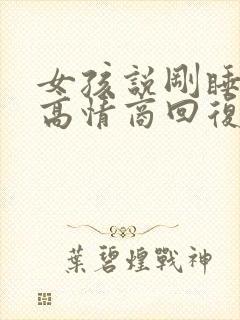 女孩説剛睡
高情商回復
葉碧煌戰神